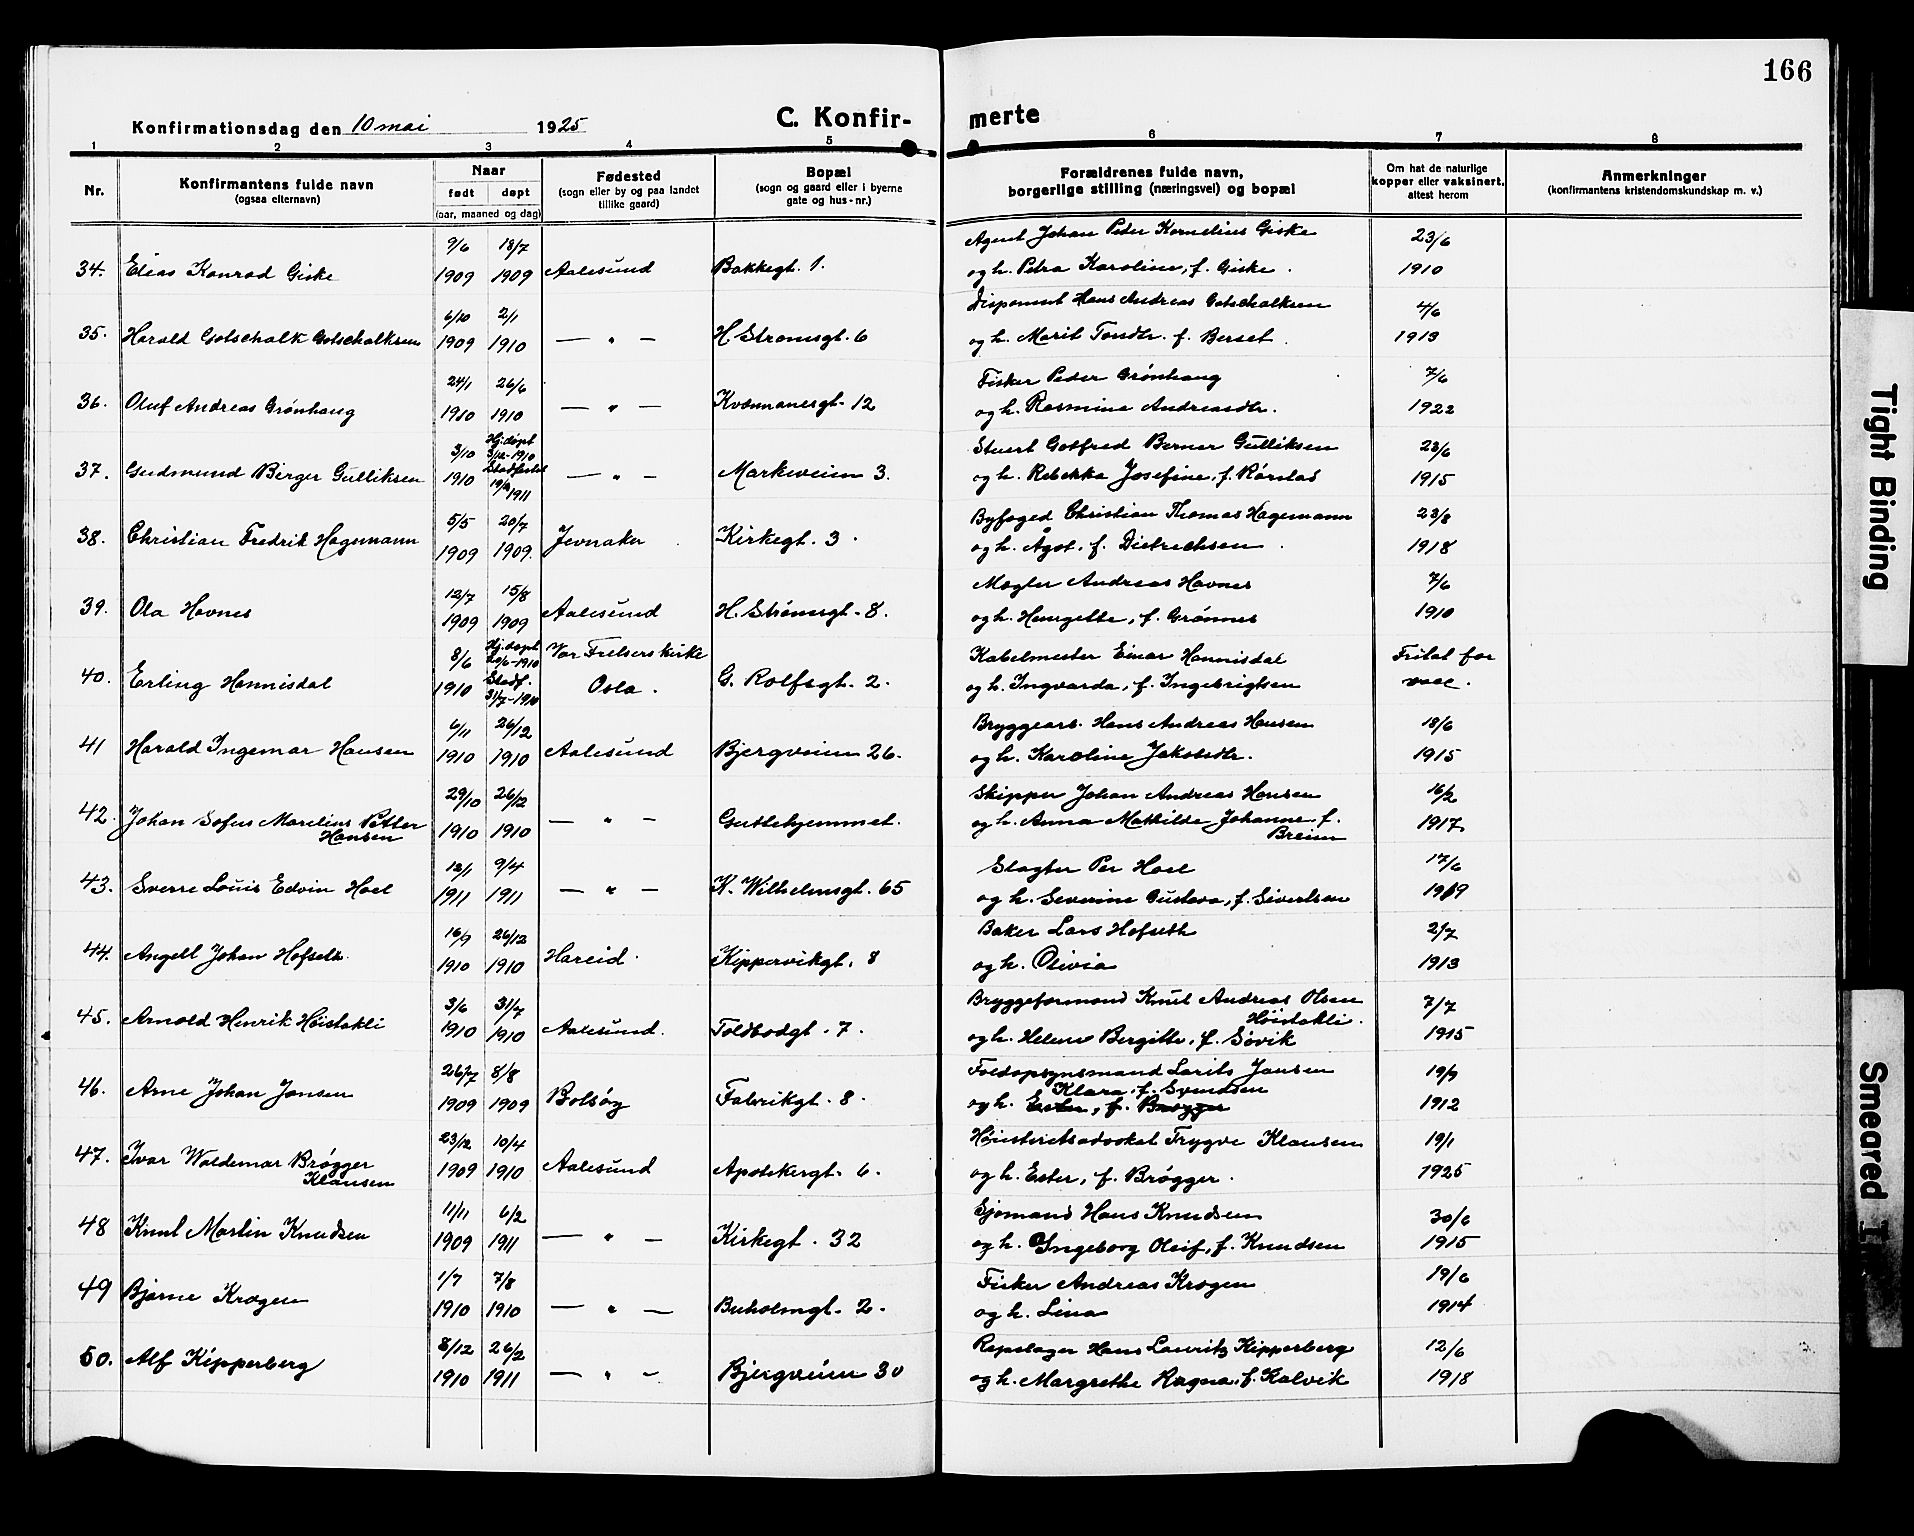 166
Konfirmationsdag den 10 mai 1925
C. Konfir- merte
1 2 3 4 5 6 7 8
Nr.
Konfirmantens fulde navn
(ogsaa efternavn)
Naar
født døpt
(aar, maaned og dag)
Fødested
(sogn eller by og paa landet
tillike gaard)
Bopæl
(sogn og gaard eller i byerne
gate og hus-nr.)
Forældrenes fulde navn,
borgerlige stilling (næringsvei) og bopæl
Om hat de naturlige
kopper eller vaksinert,
attest herom
Anmerkninger
(konfirmantens kristendomskundskap m. v.)
9/6 18/7 Agent Johan Peder Kornelius Giske 23/6
34. Elias Konrad Giske 1909 1909 Aalesund Bakkegt. 1. og h. Petra Karoline, f. Giske. 1910
6/10 2/1 Disponent Hans Andreas Gotschalksen 4/6
35. Harald Gotschalk Gotschalksen 1909 1910 — " — H. Strømsgt. 6 og h. Marit Tondtr. f. Berset. 1913
24/1 26/6 Fisker Peder Grønhaug 7/6
36. Oluf Andreas Grønhaug 1910 1910 — " — Kvennanesgt. 12 og h. Rasmine Andreasdtr. 1922
3/10 Hj. døpt 3/12-1910 Stuert Gotfred Berner Gulliksen 23/6
37. Gudmund Birger Gulliksen 1910 Stadfestet 1911 — " — Markeveien 3. og h. Rebekka Josefine, f. Rørstad 1915
5/5 20/7 Byfoged Christian Thomas Hagemann 23/8
38. Christian Fredrik Hagemann 1909 1909. Jevnaker Kirkegt. 3. og h. Ågot, f. Dietrechsen. 1918
12/7 15/8 Mægler Andreas Havnes 7/6
39. Ola Havnes 1909 1909 Aalesund H. Strømsgt. 8. og h. Hengette, f. Grønnes 1910
8/6 Hj. døpt -1910 Vor Frelsers kirke Kabelmester Einar Hannisdal Fritat for
40. Erling Hannisdal 1910 Stadf. 31/7-1910 Oslo. G. Rolfsgt. 2. og h. Ingvarda, f. Ingebrigtsen vacc.
6/11 26/12 Bryggearb. Hans Andreas Hansen 18/6
41 Harald Ingemar Hansen 1910 1910 Aalesund Bjergveien 26. og h. Karoline Jakobsdtr. 1915
29/10 26/12 Skipper Johan Andreas Hansen 16/2
42. Johan Sofus Marelius Petter 1910 1910 — " — Guttehjemmet. og h. Anna Mathilde Johanne f. 1917
Hansen Breien
12/1 9/4 Slagter Per Hoel 17/6
43. Sverre Louis Edvin Hoel 1911 1911 — " — K. Wilhelmsgt. 65 og h. Severine Gustava, f. Sivertsen 1919
16/9 26/12 Baker Lars Hofseth 2/7
44. Angell Johan Hofseth. 1910 1910 Hareid. Kippervikgt. 8 og h. Olivia 1913
3/6 31/7 Bryggeformand Knut Andreas Olsen 7/7
Høistakli.
45. Arnold Henrik Høistakli 1910 1910 Aalesund. Toldbodgt. 7. og h. Helene Bergitte, f. Søvik 1915
26/7 8/8 Foldopsynsmand Larits Jansen 19/9
Klara, f. Svendsen
46. Arne Johan Jansen 1909 1909 Bolsøy Fabrikgt. 8. og h. Ester, f. Brøgger 1912
23/12 10/4 Høiesteretsadvokat Trygve Klausen 19/1
47. Ivar Waldemar Brøgger 1909 1910 Aalesund Apotekergt. 6. og h. Ester, f. Brøgger. 1925
Klausen
11/11 6/2 Sjømand Hans Knudsen 30/6
48 Knut Martin Knudsen 1909 1911 — " — Kirkegt. 32 og h. Ingeborg Oleif, f. Knudsen 1915
1/7 7/8 Fisker Andreas Krogen 19/6
49 Bjarne Krogen 1910 1910 — " — Buholmgt. 2. og h. Lina 1914
8/12 26/2 Repslager Hans Lauritz Kipperberg 12/6
50. Alf Kipperberg 1910 1911 — " — Bjergveien 30 og h. Margrethe Ragna, f. Kalvik 1918
Tight Binding
Smeared I